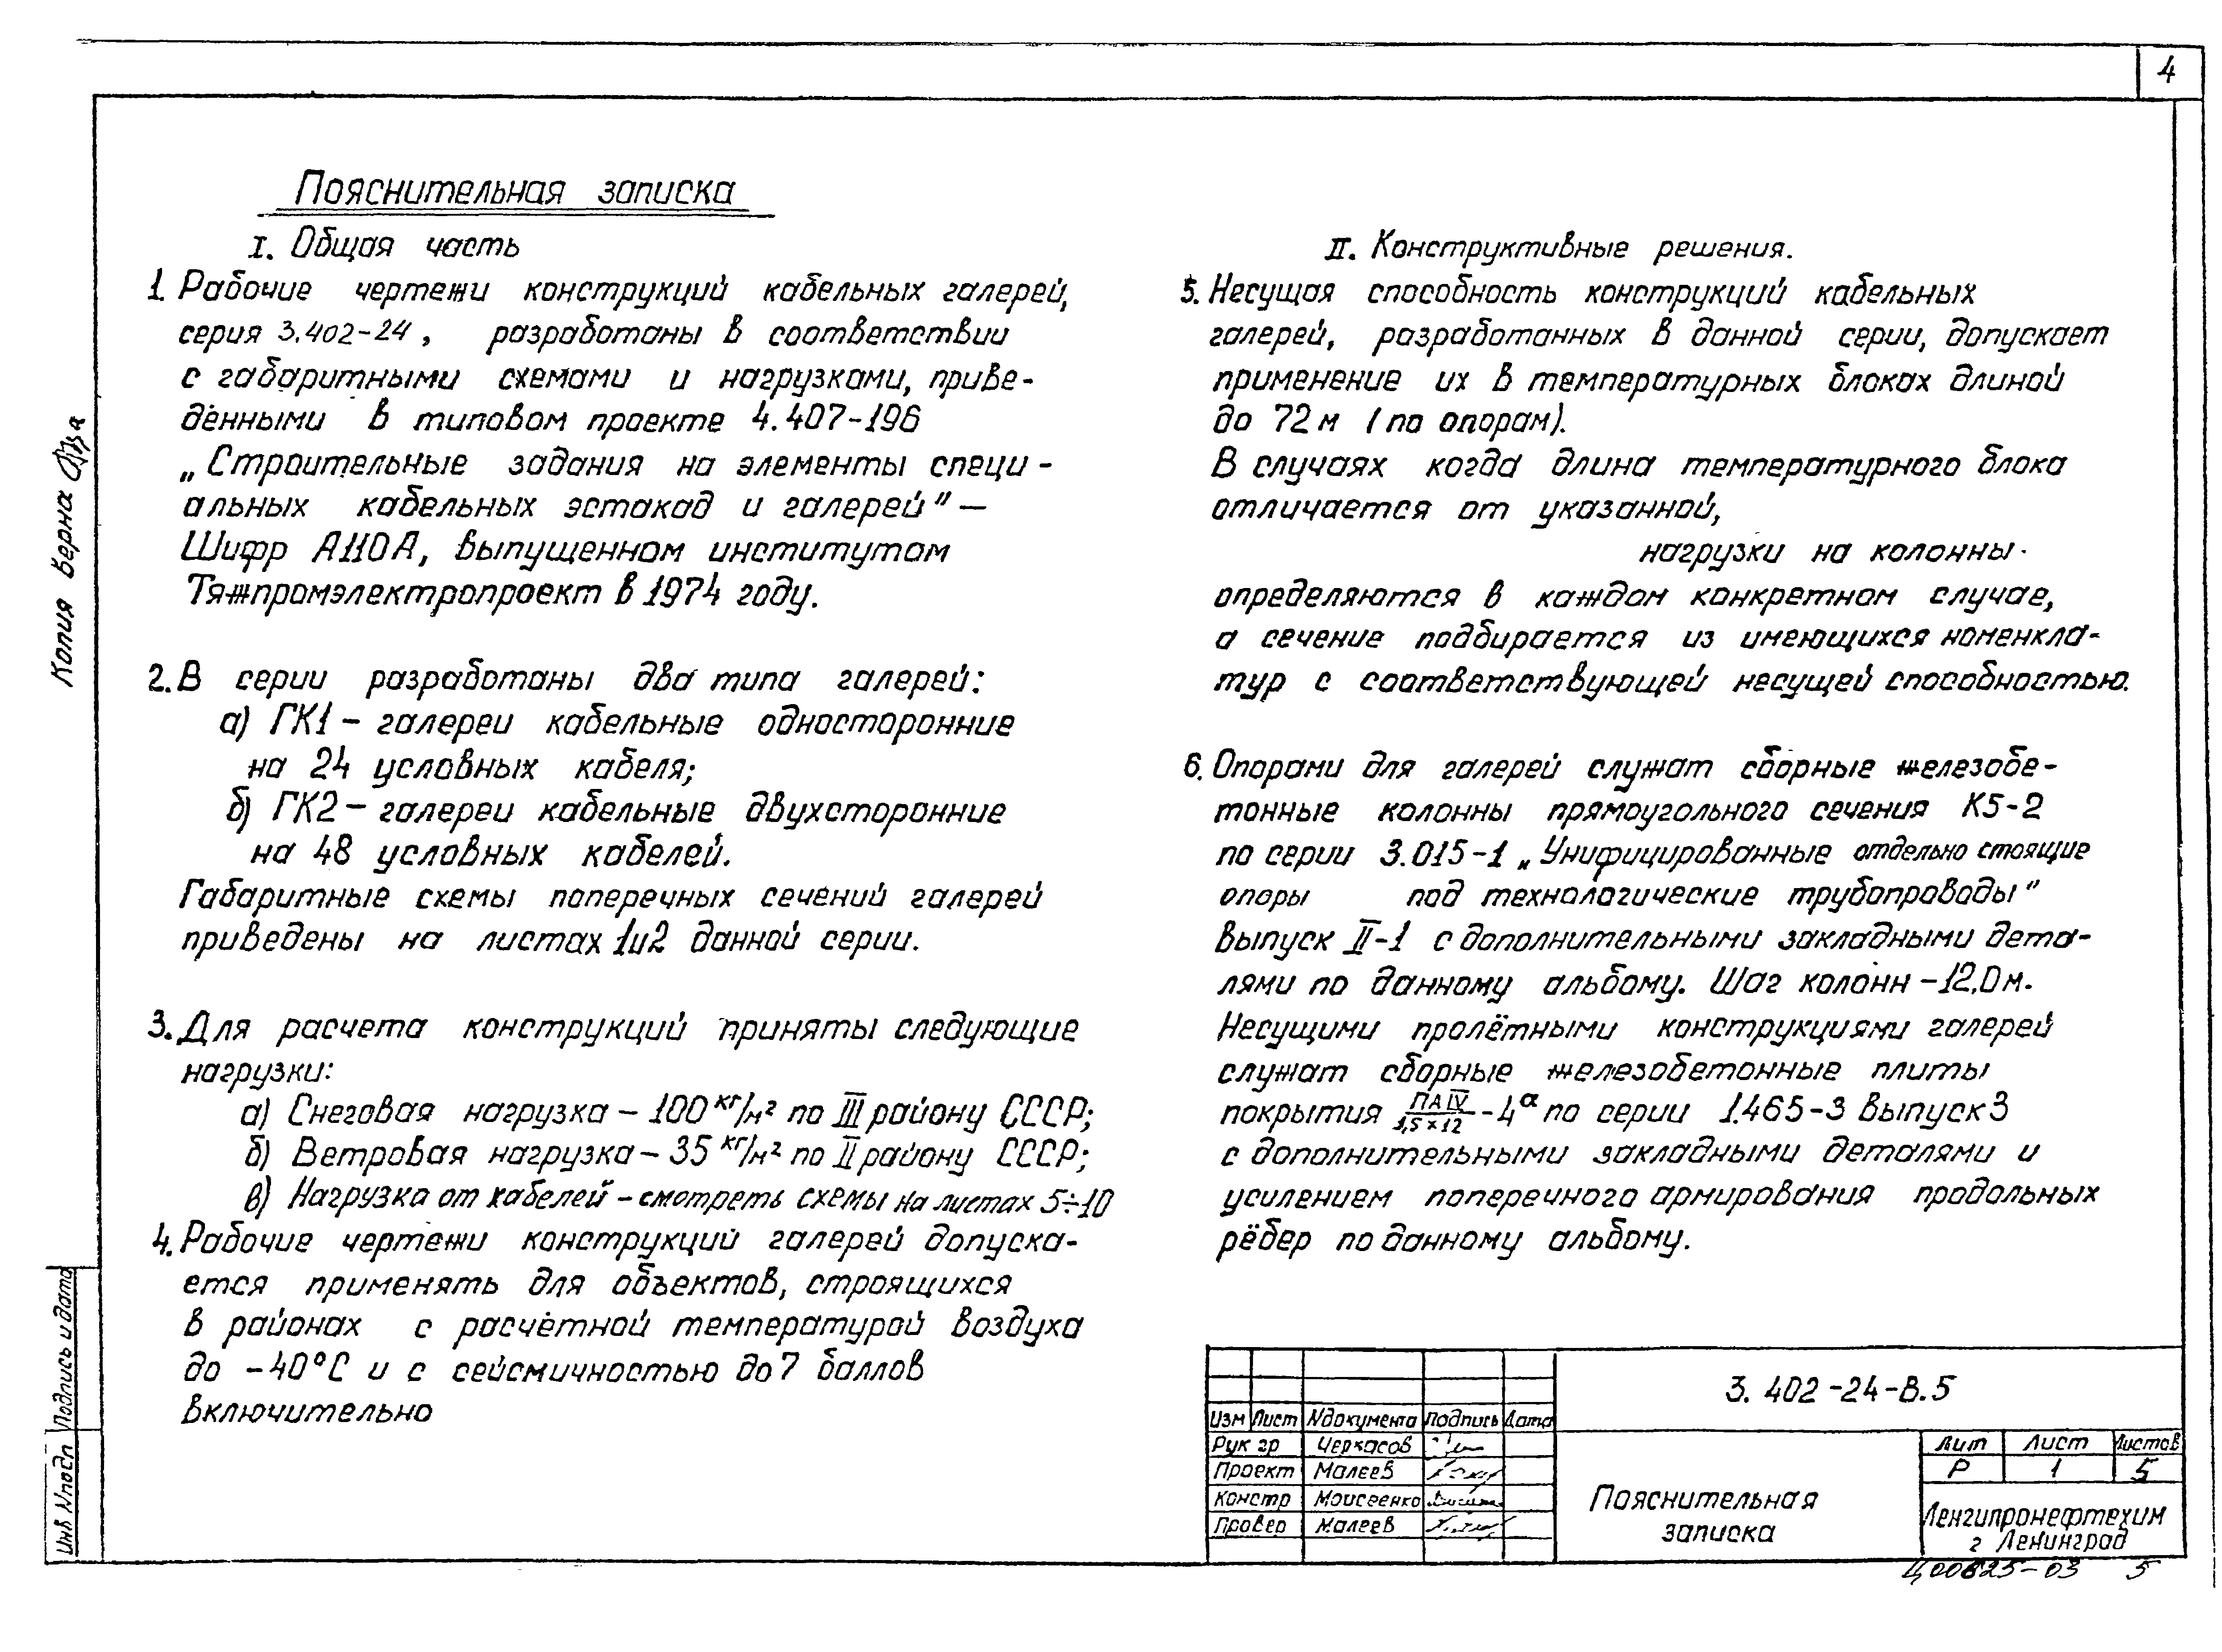 4
Пояснительная записка
I. Общая часть
1. Рабочие чертежи конструкций кабельных галерей,
серия 3.402-24, разработаны в соответствии
с габаритными схемами и нагрузками, приве-
дёнными в типовом проекте 4.407-196
„Строительные задания на элементы специ-
альных кабельных эстакад и галерей" —
Шифр А110А, выпущенном институтом
Тяжпромэлектропроект в 1974 году.
2. В серии разработаны два типа галерей:
а) ГК1 - галереи кабельные односторонние
на 24 условных кабеля;
б) ГК2 - галереи кабельные двухсторонние
на 48 условных кабелей.
Габаритные схемы поперечных сечений галерей
приведены на листах 1и2 данной серии.
3. Для расчета конструкций приняты следующие
нагрузки:
а) Снеговая нагрузка - 100 кг/м² по III району СССР;
б) Ветровая нагрузка - 35 кг/м² по II району СССР;
в) Нагрузка от кабелей - смотреть схемы на листах 5÷10
4. Рабочие чертежи конструкций галерей допуска-
ется применять для объектов, строящихся
в районах с расчётной температурой воздуха
до -40°С и с сейсмичностью до 7 баллов
включительно
II. Конструктивные решения.
5. Несущая способность конструкций кабельных
галерей, разработанных в данной серии, допускает
применение их в температурных блоках длиной
до 72м (по опорам).
В случаях когда длина температурного блока
отличается от указанной,
нагрузки на колонны
определяются в каждом конкретном случае,
а сечение подбирается из имеющихся номенкла-
тур с соответствующей несущей способностью.
6. Опорами для галерей служат сборные железобе-
тонные колонны прямоугольного сечения К5-2
по серии 3.015-1 „Унифицированные отдельно стоящие
опоры под технологические трубопроводы"
Выпуск II-1 с дополнительными закладными дета-
лями по данному альбому. Шаг колонн -12,0м.
Несущими пролётными конструкциями галерей
служат сборные железобетонные плиты
покрытия ПА IV/1,5×12 -4а по серии 1.465-3 Выпуск 3
с дополнительными закладными деталями и
усилением поперечного армирования продольных
рёбер по данному альбому.
Копия верна
Подпись и дата
Инв Nподл
3. 402-24-В.5
Изм Лист Nдокумента Подпись Дата
Рук гр Черкасов
Проект Малеев
Констр Моисеенко
Провер Малеев
Пояснительная
записка
Лит Лист Листов
Р 1 5
Ленгипронефтехим
г Ленинград
Ц00825-03 5